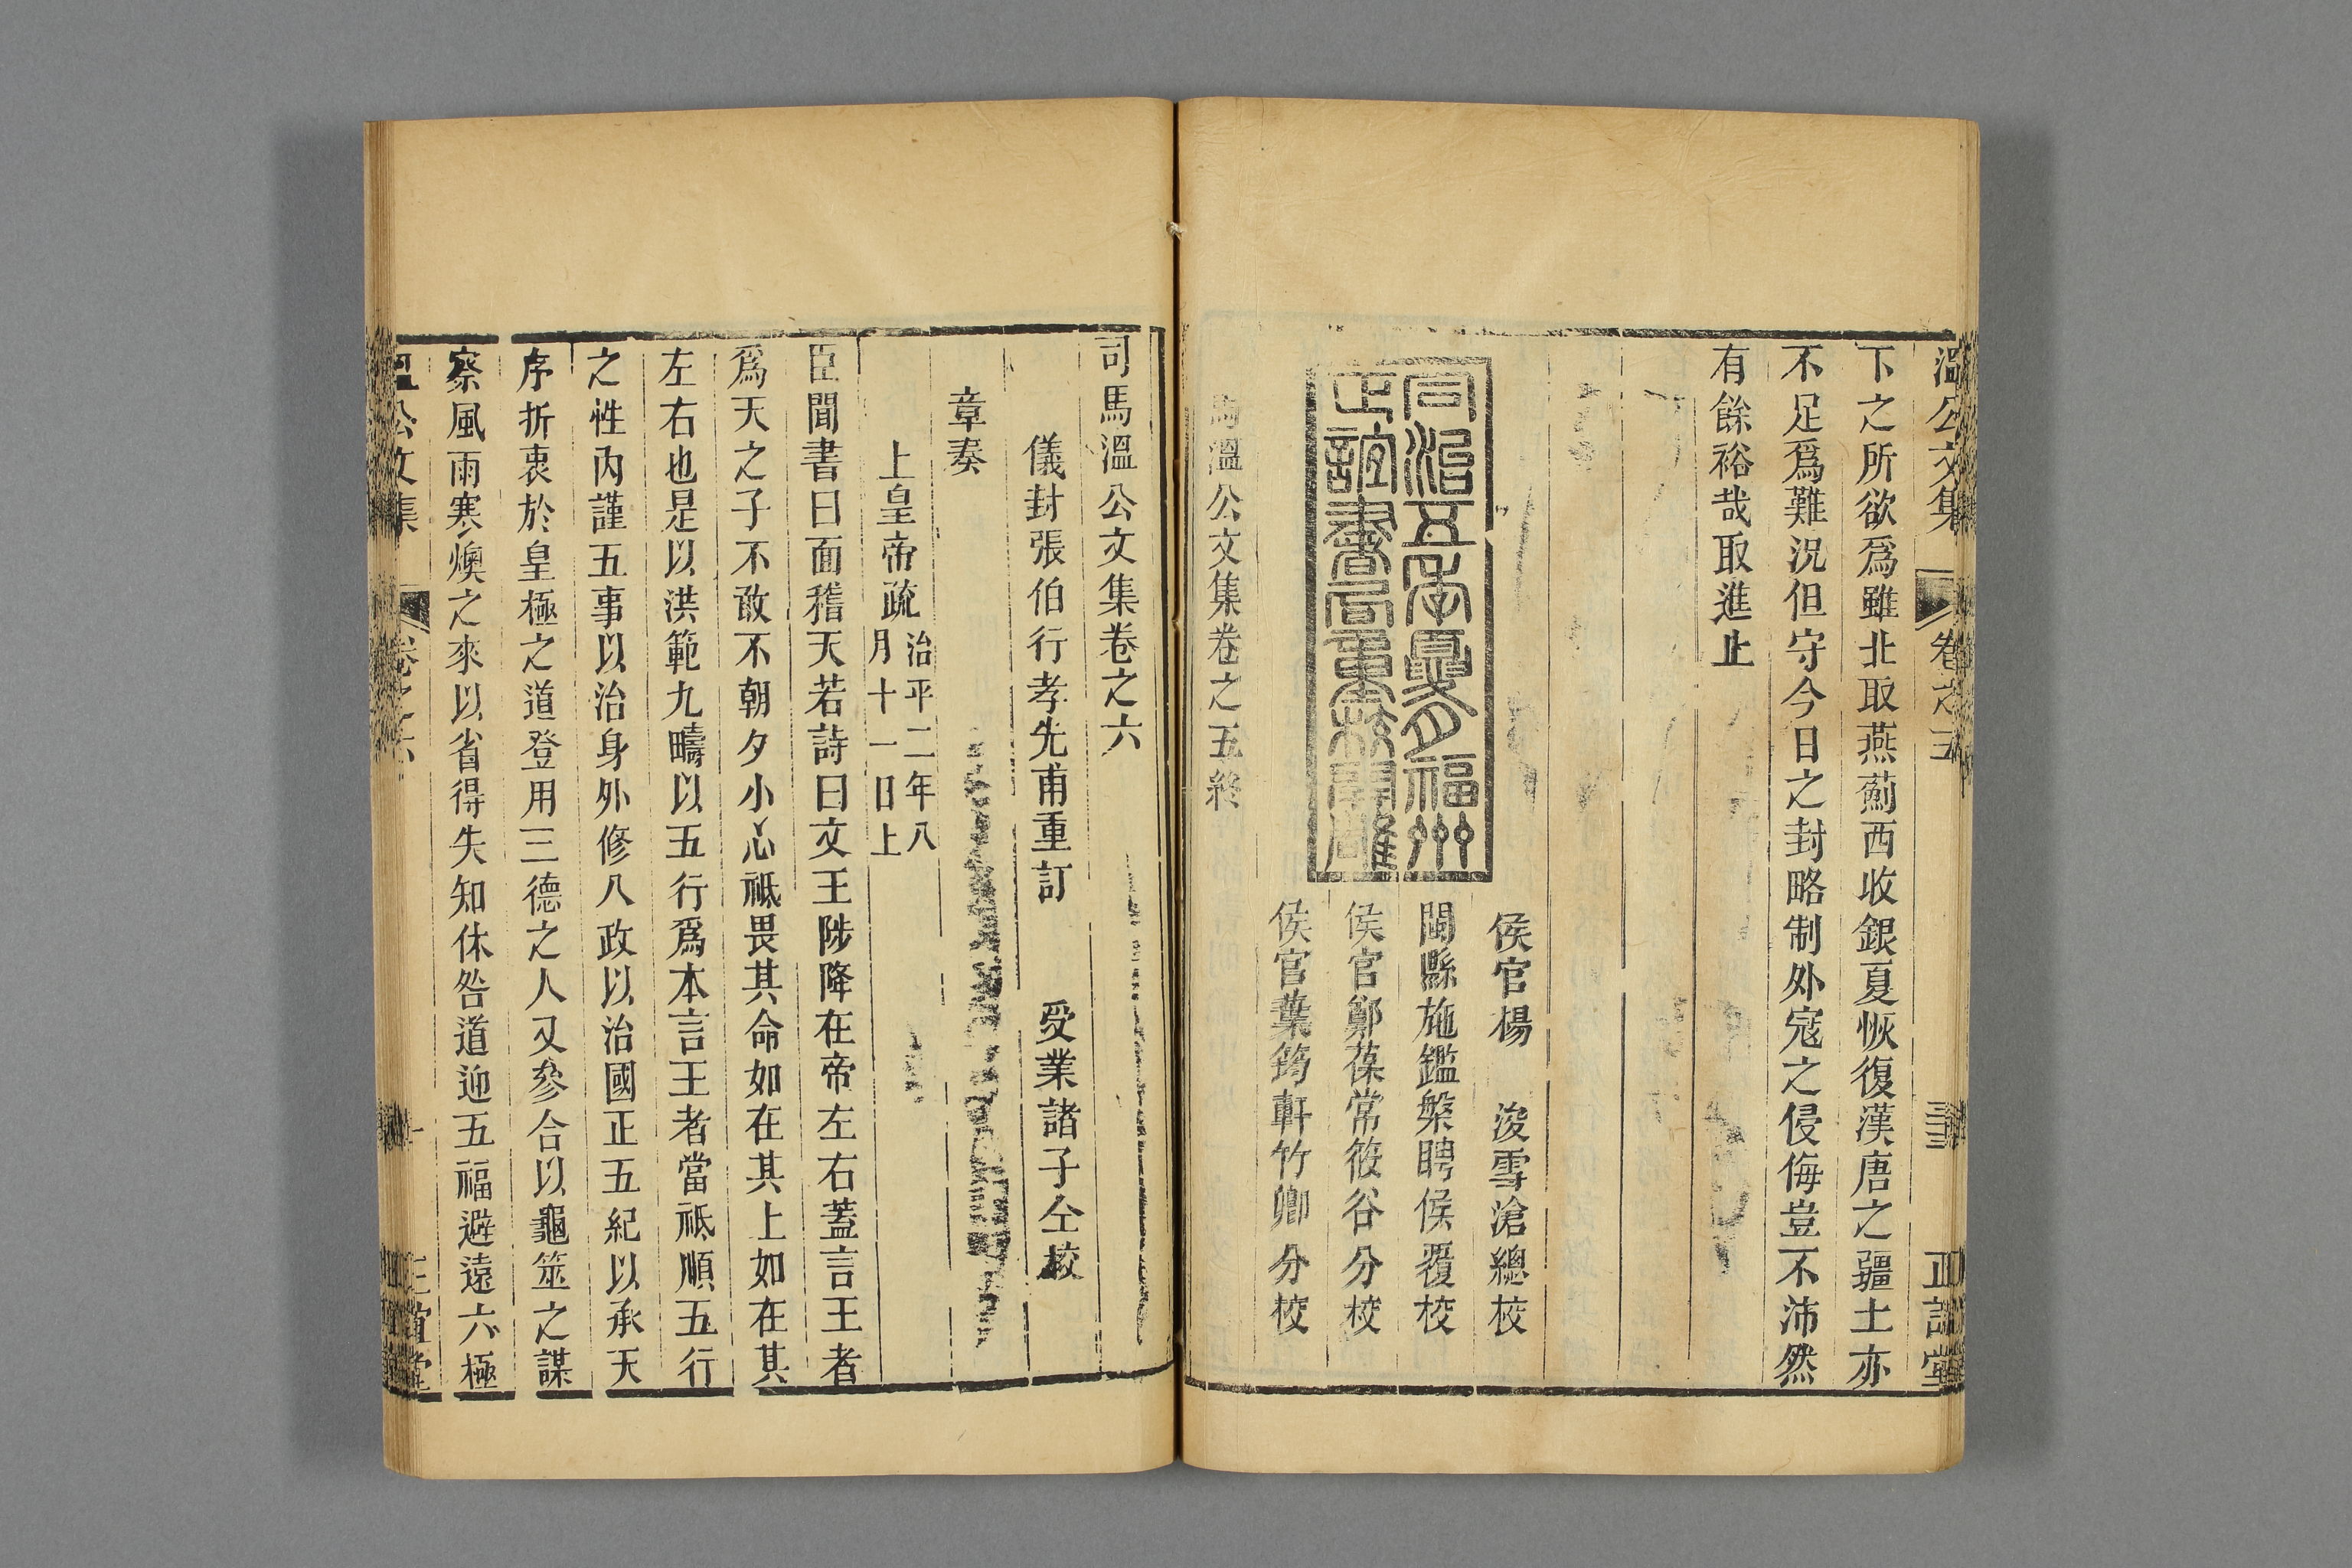 溫公文集 卷之五 正誼堂
下之所欲爲雖北取燕薊西收銀夏恢復漢唐之疆土亦
不足爲難況但守今日之封略制外寇之侵侮豈不沛然
有餘裕哉取進止
侯官楊 浚雪滄總校
同治五年夏月福州
正誼書局重校開雕
閩縣施鑑槃聘侯覆校
侯官鄭葆常筱谷分校
侯官葉筠軒竹卿分校
馬溫公文集卷之五終
司馬溫公文集卷之六
儀封張伯行孝先甫重訂 受業諸子仝校
章奏
上皇帝疏治平二年八
月十一日上
臣聞書曰面稽天若詩曰文王陟降在帝左右蓋言王者
爲天之子不敢不朝夕小心祗畏其命如在其上如在其
左右也是以洪範九疇以五行爲本言王者當祗順五行
之性內謹五事以治身外修八政以治國正五紀以承天
序折衷於皇極之道登用三德之人又參合以龜筮之謀
察風雨寒燠之來以省得失知休咎道迎五福避遠六極
溫公文集 卷之六 一 正誼堂